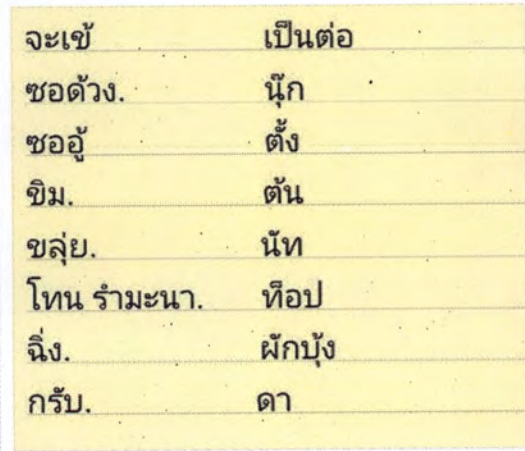 จะเข้ เป็นต่อ
ซอด้วง. นุ๊ก
ซออู้ ตั้ง
ขิม. ต้น
ขลุ่ย. นัท
โทน รำมะนา. ท็อป
ฉิ่ง. ผักบุ้ง
กรับ. ดา